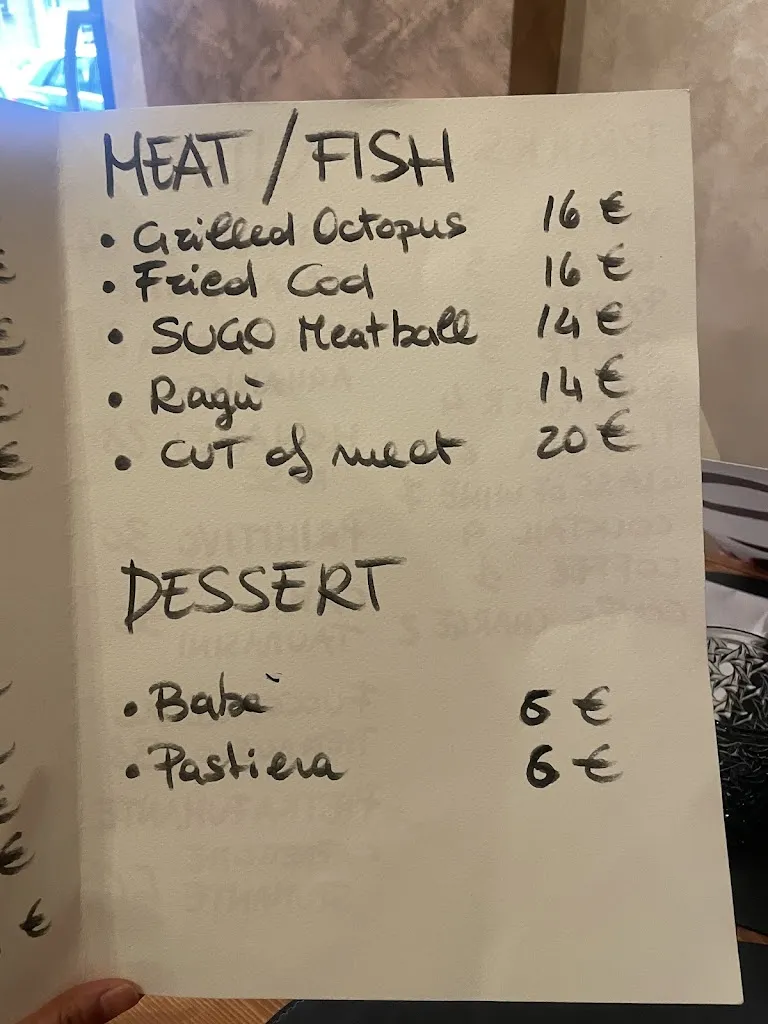 MEAT / FISH
• Grilled Octopus 16 €
• Fried Cod 16 €
• SUGO Meatball 14 €
• Ragù 14 €
• CUT of meat 20 €
DESSERT
• Babà 6 €
• Pastiera 6 €